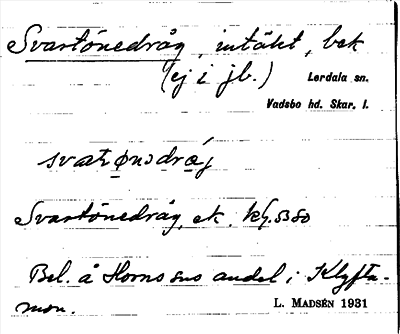 Svartönedråg, intäkt, bek
(ej i jb.) Lerdala sn.
Vadsbo hd. Skar. l.
Svartönedråg, ek. bl. 53 So
Bel. å Horns sns andel i Klyfta-
mon. L. MADSÉN 1931